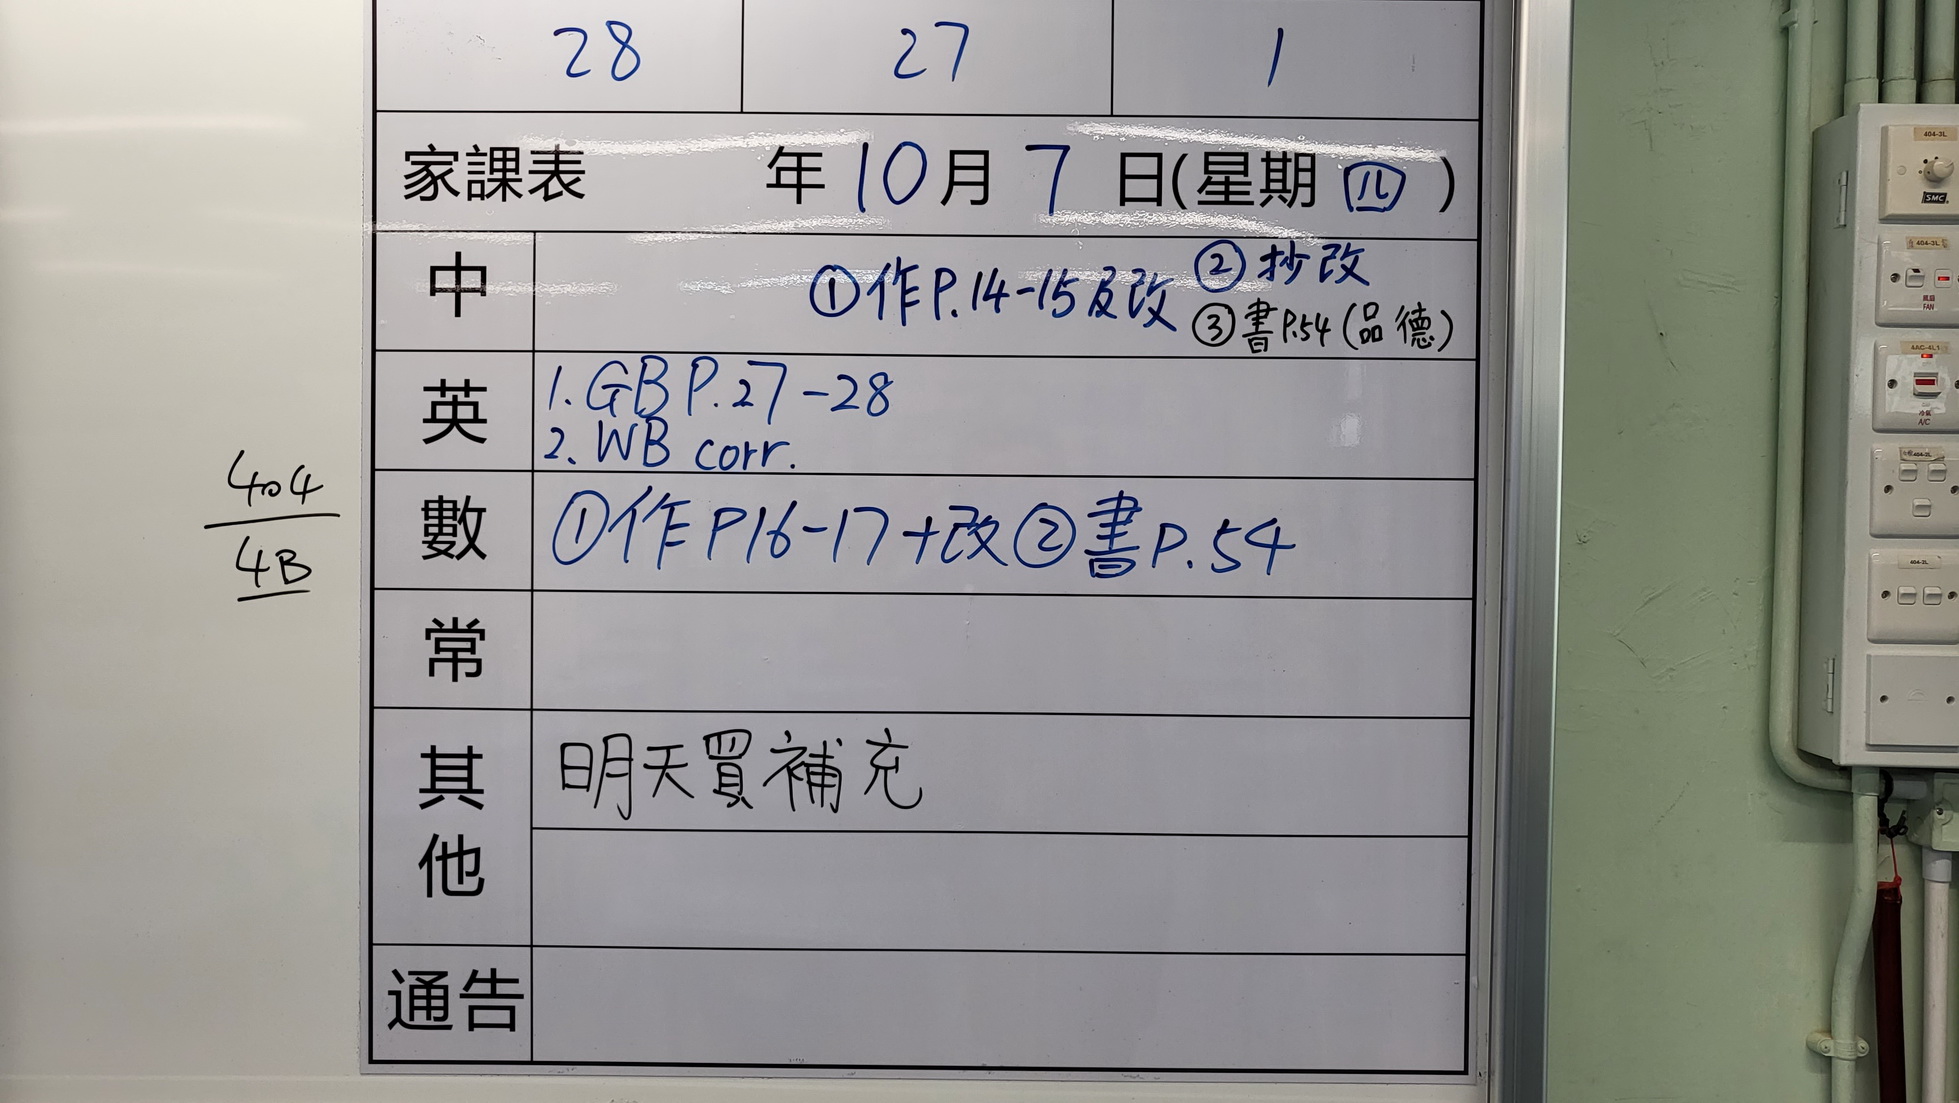 28 27 1
家課表 年10月7日(星期四)
中 ①作P.14-15及改 ②抄改
③書P.54(品德)
英 1. GB P.27-28
2. WB corr.
數 ①作P16-17+改②書P.54
常
其他 明天買補充
通告
404
4B
404-3L
SMC
404-3L
風扇
FAN
冷氣
A/C
404-2L